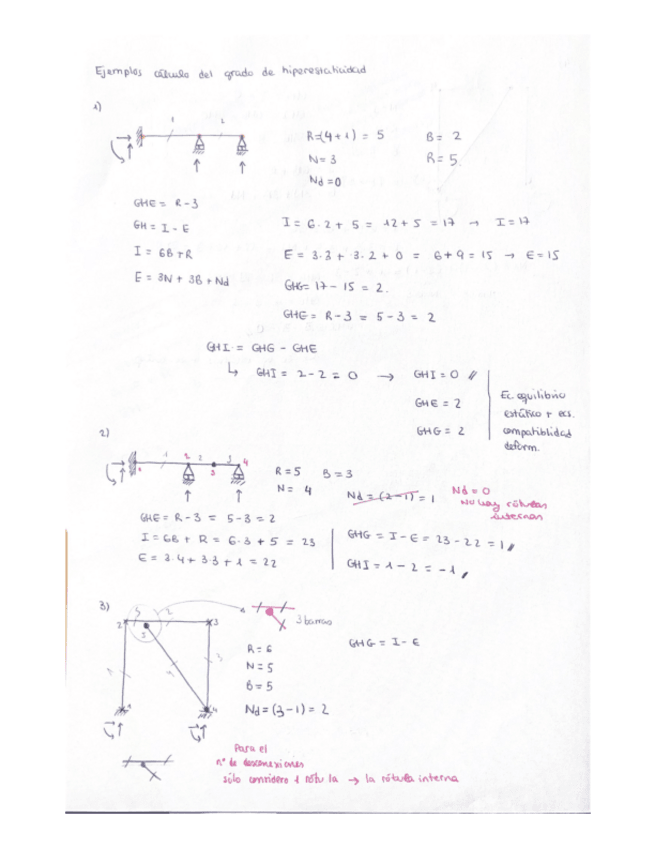 Ejemplos cálculo del grado de hiperestaticidad
1)
1 2
R=(4+1) = 5 B= 2
N= 3 R= 5
Nd=0
GHE= R-3
GH = I - E I = 6·2+5 = 12+5 = 17 → I=17
I = 6B+R E = 3·3 + 3·2 + 0 = 6+9 = 15 → E=15
E = 3N + 3B + Nd GHG= 17-15 = 2.
GHE = R-3 = 5-3 = 2
GHI = GHG - GHE
↳ GHI = 2-2 = 0 → GHI = 0 //
GHE = 2
GHG = 2
Ec. equilibrio
estático + ecs.
compatiblidad
deform.
2)
1 1 2 2 3 3 4
R=5 B=3
N= 4 Nd = (2-1) = 1 Nd = 0
No hay rótulas
internas
GHE = R-3 = 5-3 = 2
I = 6B + R = 6·3 + 5 = 23
E = 3·4 + 3·3 + 1 = 22
GHG = I - E = 23-22 = 1 //
GHI = 1-2 = -1 //
3)
3 barras
2 5 2 3
5
1 4 3
1 4
R= 6 GHG = I - E
N= 5
B= 5
Nd = (3-1) = 2
Para el
nº de desconexiones
sólo considero 1 rótula → la rótula interna